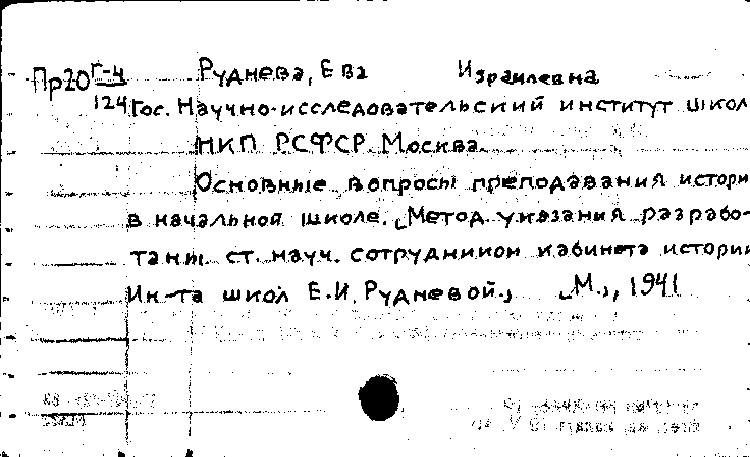 Пр20 Г-4 Руднева, Ева Израилевна
124 Гос. Научно-исследовательский институт школ
НКП РСФСР. Москва.
Основные вопросы преподавания истори
в начальной школе. [Метод. указания разрабо-
таны ст. науч. сотрудником кабинета истории
Ин-та школ Е.И. Рудневой.] [М.], 1941